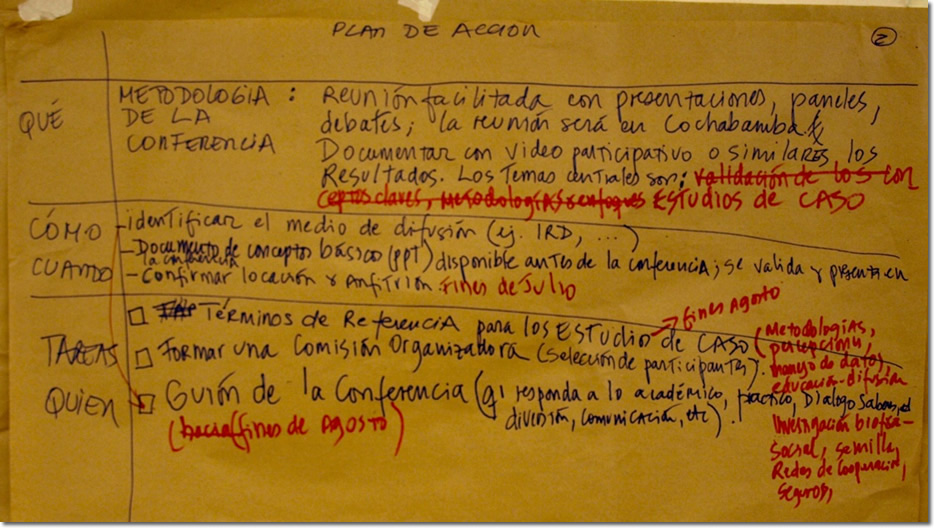 PLAN DE ACCION
2
QUÉ
METODOLOGIA :
DE LA
CONFERENCIA
Reunión facilitada con presentaciones, paneles,
debates; la reunión será en Cochabamba.
Documentar con video participativo o similares los
Resultados. Los Temas centrales son: validación de los con
ceptos claves, metodologías enfoques ESTUDIOS DE CASO
CÓMO
CUANDO
- identificar el medio de difusión (ej. IRD, ...)
- Documento de conceptos básico (PPT) disponible antes de la conferencia; se valida y presenta en
la conferencia
- Confirmar locación y Anfitrión. Fines de Julio
TAREAS
QUIEN
Términos de Referencia para los ESTUDIO de CASO → fines Agosto
(Metodologías,
percepción,
manejo de datos,
educación-difusión
Investigación biofísica-
social, semilla,
Redes de Cooperación,
Seguros,
Formar una Comisión Organizadora (selección de participantes).
Guión de la Conferencia (q' responda a lo académico, práctico, Dialogo Saberes,
diversión, comunicación, etc).
(hacia fines de AGOSTO)